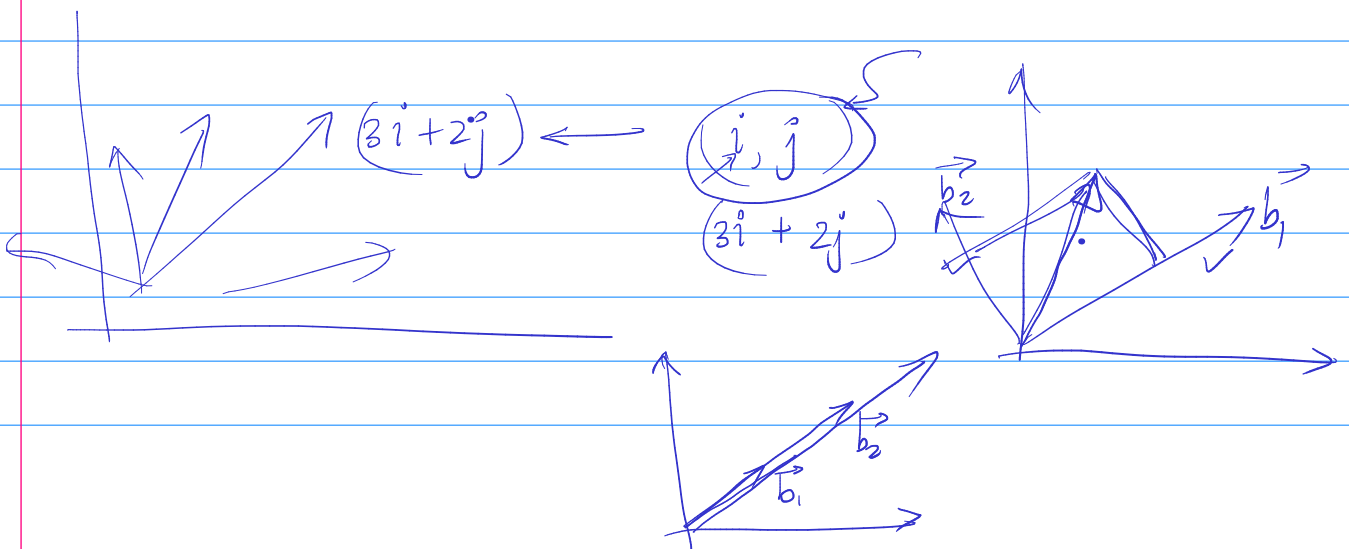 (3i + 2j) ← (i, j)
(3i + 2j)
b⃗₂
b⃗₁
b⃗₂
b⃗₁